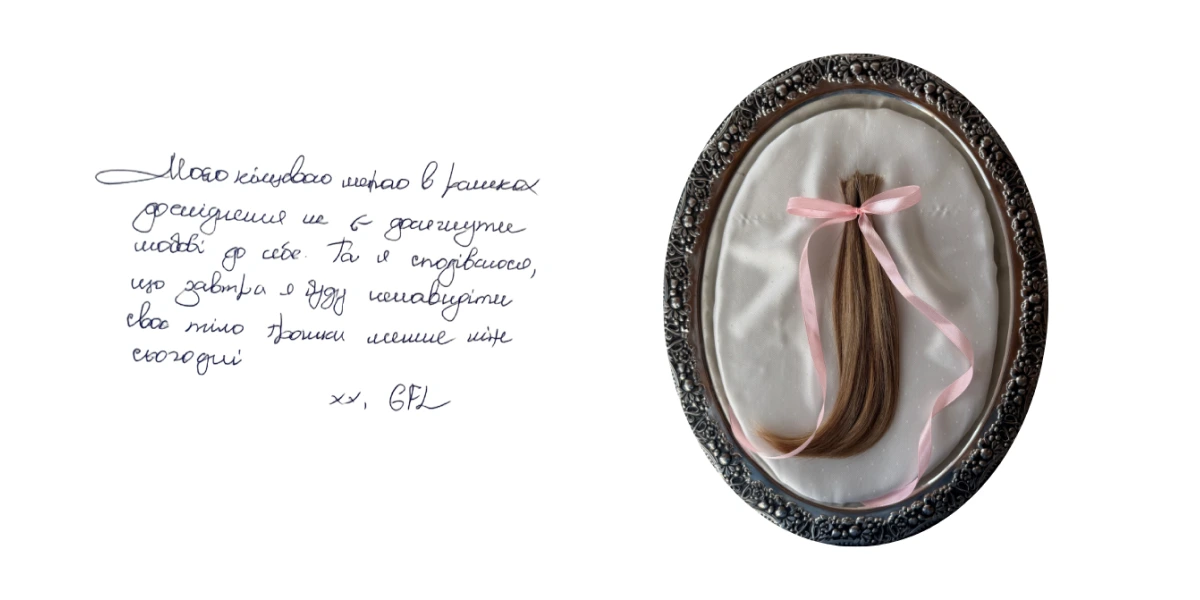 Моєю кінцевою метою в рамках
дослідження не є досягнути
любові до себе. Та я сподіваюся,
що завтра я буду ненавидіти
своє тіло трошки менше ніж
сьогодні
xx, GFL